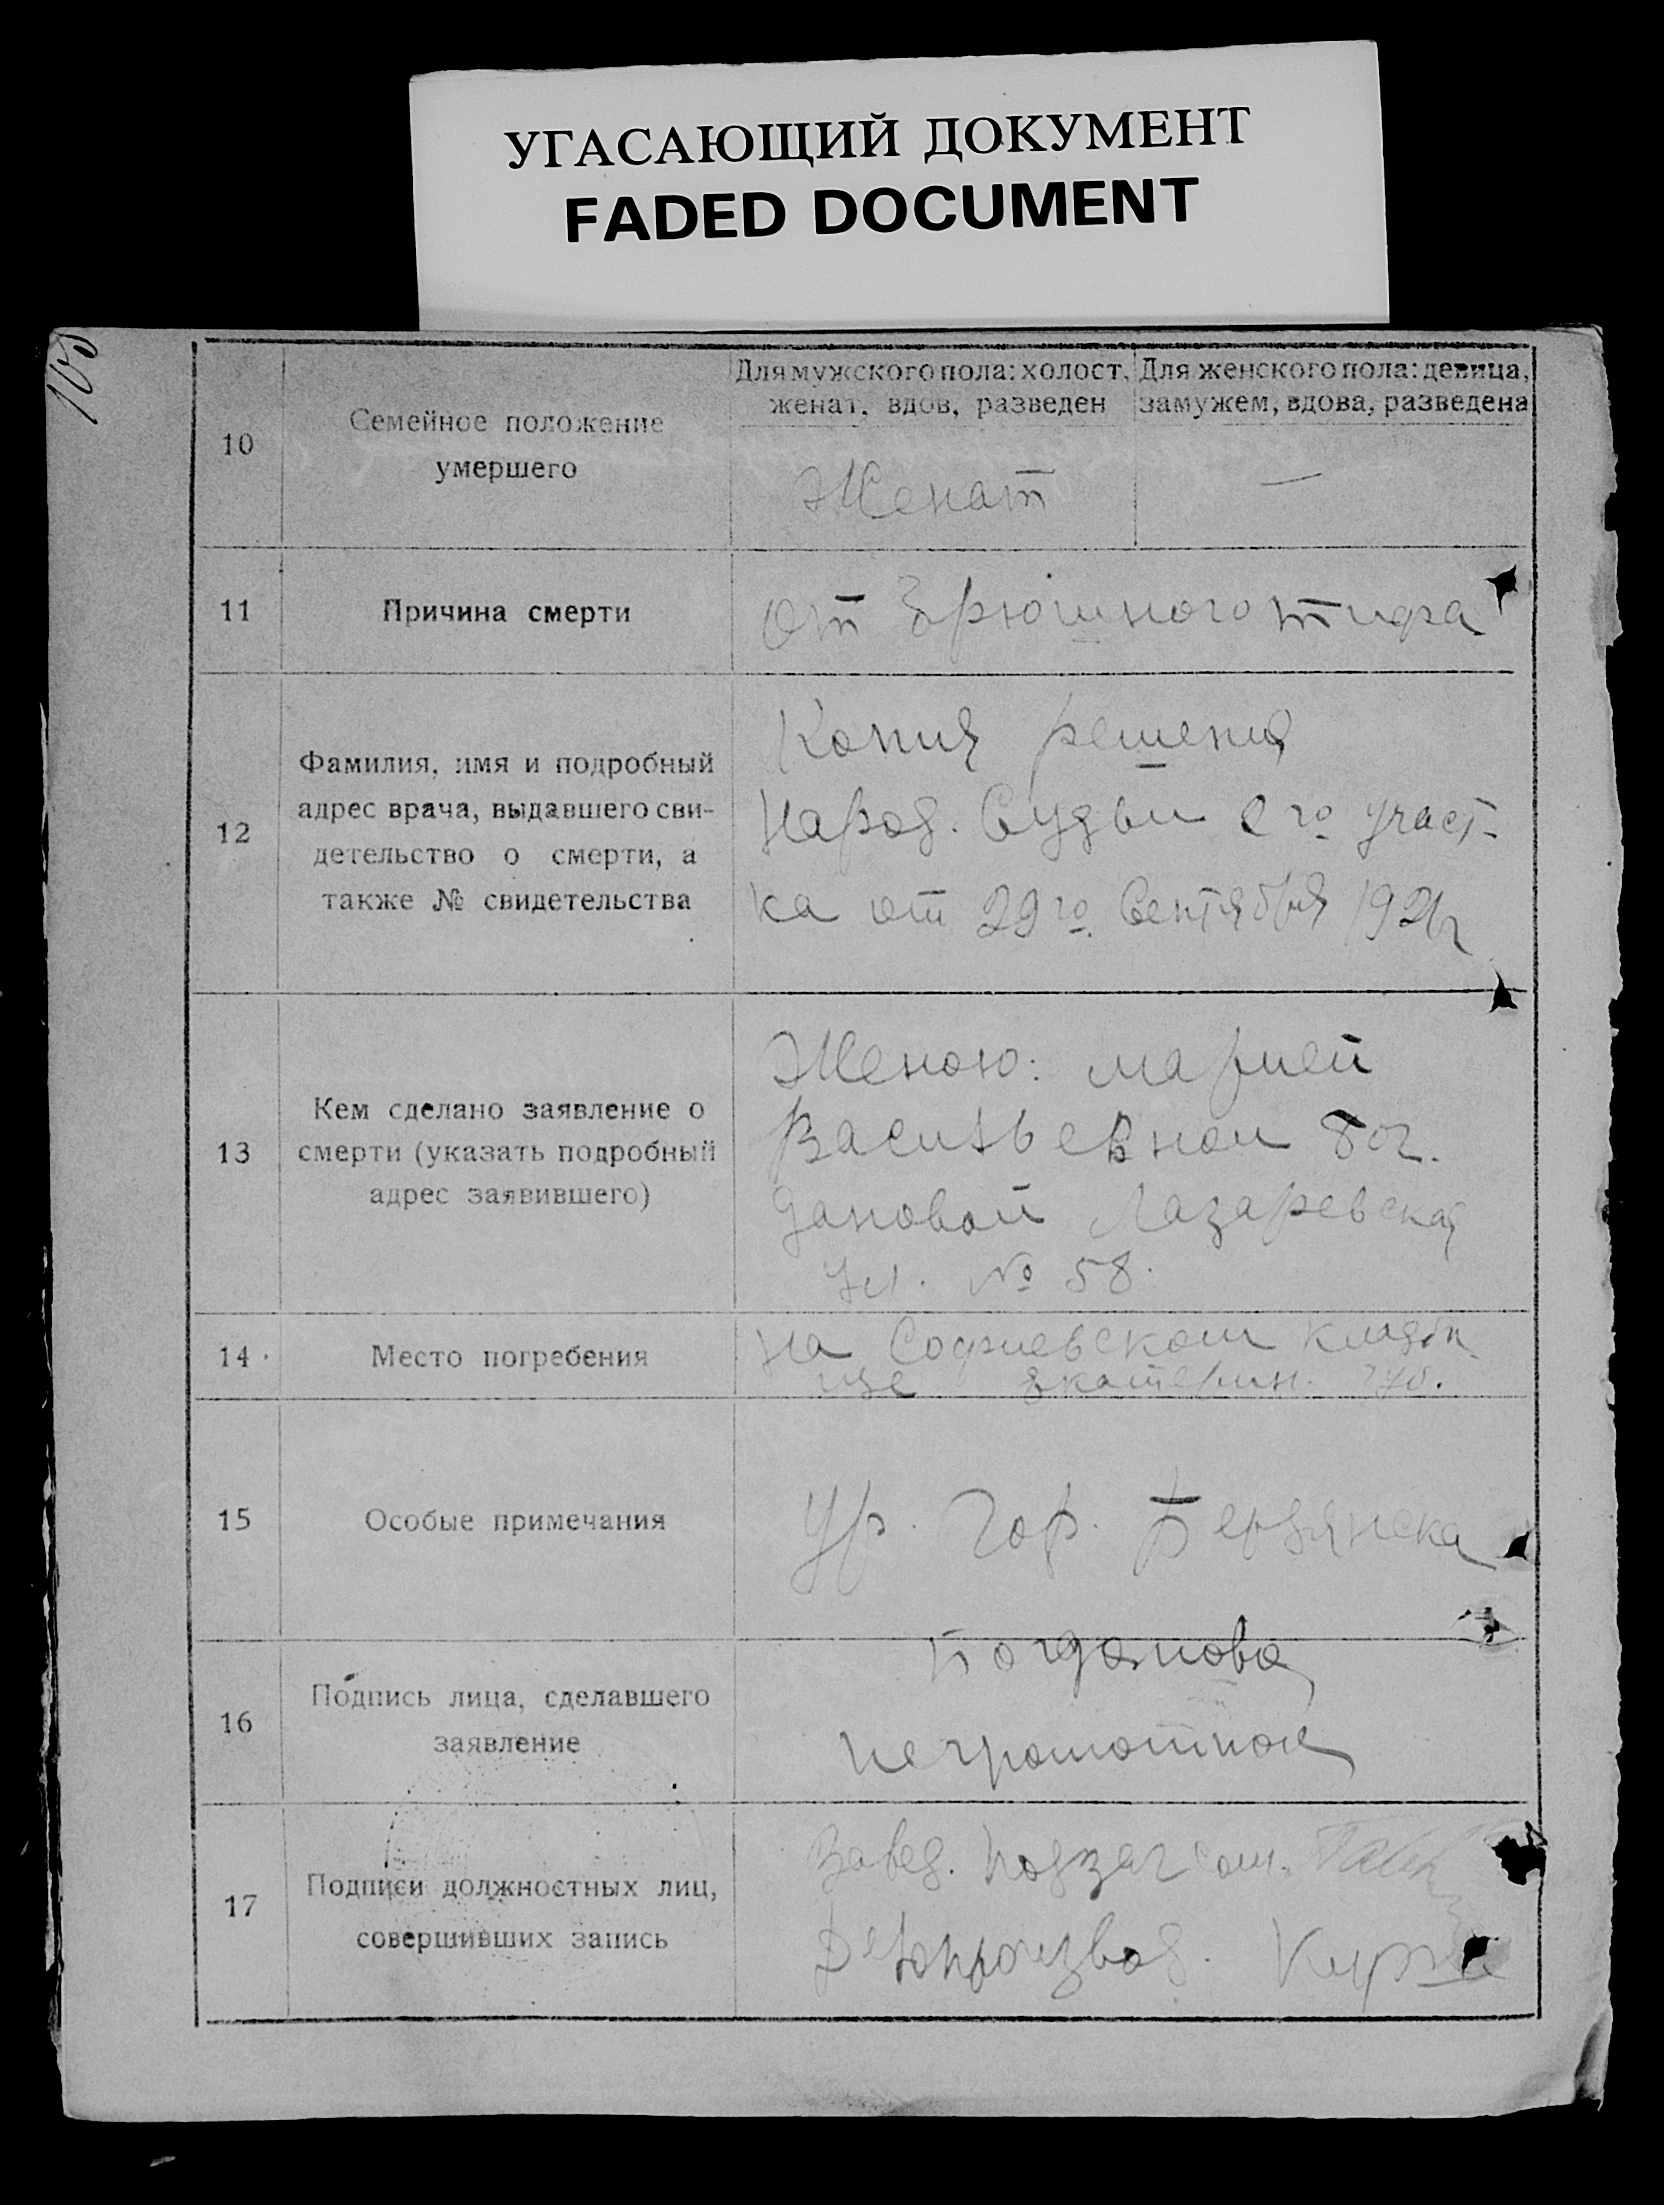 УГАСАЮЩИЙ ДОКУМЕНТ
FADED DOCUMENT
10
Семейное положение
умершего
Для мужского пола: холост,
женат, вдов, разведен
Для женского пола: девица,
замужем, вдова, разведена
Женат
—
11
Причина смерти
От брюшного тифа
12
Фамилия, имя и подробный
адрес врача, выдавшего сви-
детельство о смерти, а
также № свидетельства
Копия решения
Народ. Судьи 2го участ-
ка от 29го Сентября 1921г
13
Кем сделано заявление о
смерти (указать подробный
адрес заявившего)
Женою: Марией
Васильевной Бог.
дановой Лазаревская
ул. № 58.
14
Место погребения
На Софиевском кладби
ще Екатерин. губ.
15
Особые примечания
Ур. Гор. Бердянска
16
Подпись лица, сделавшего
заявление
Богданова
неграмотная
17
Подписи должностных лиц,
совершивших запись
Завед. Подзаг
Делопроизвод.